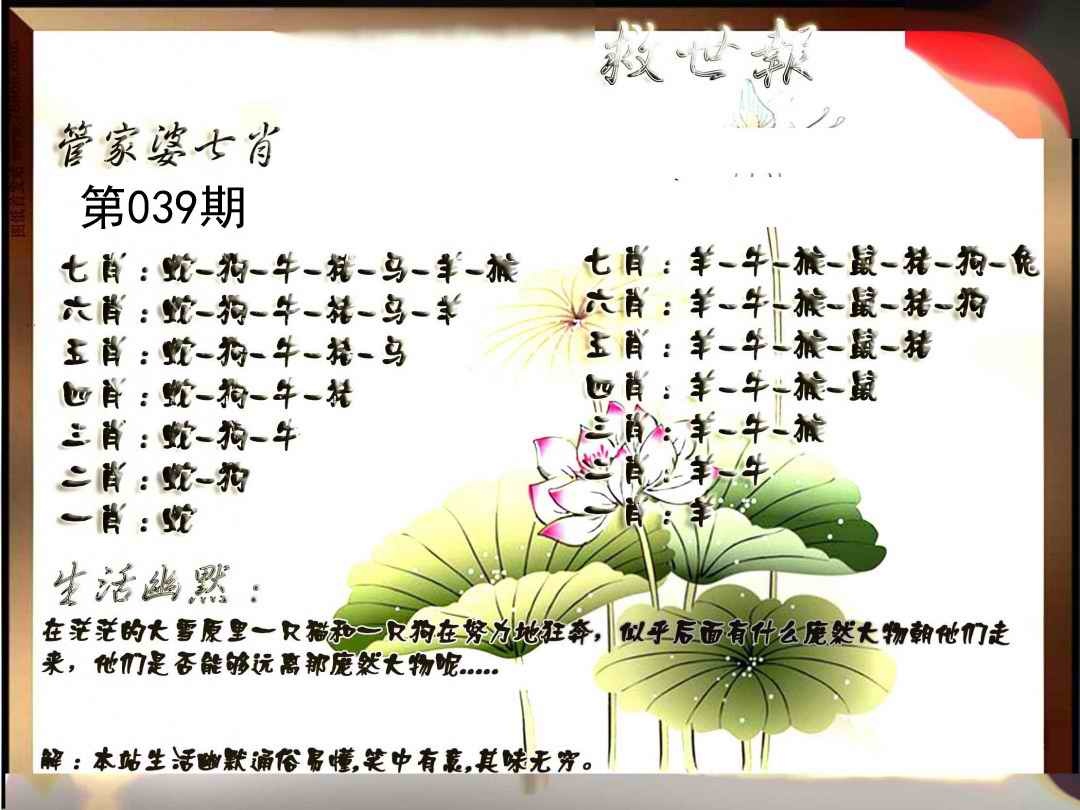 救世報
管家婆七肖
第039期
七肖:蛇-狗-牛-猪-马-羊-猴
六肖:蛇-狗-牛-猪-马-羊
五肖:蛇-狗-牛-猪-马
四肖:蛇-狗-牛-猪
三肖:蛇-狗-牛
二肖:蛇-狗
一肖:蛇
七肖:羊-牛-猴-鼠-猪-狗-兔
六肖:羊-牛-猴-鼠-猪-狗
五肖:羊-牛-猴-鼠-猪
四肖:羊-牛-猴-鼠
三肖:羊-牛-猴
二肖:羊-牛
一肖:羊
生活幽默:
在茫茫的大雪原里一只猫和一只狗在努力地狂奔，似乎后面有什么庞然大物朝他们走
来，他们是否能够远离那庞然大物呢.....
解:本站生活幽默通俗易懂,笑中有意,其味无穷。